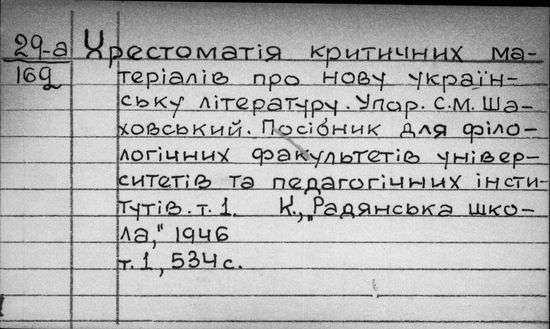 29-а Хрестоматія критичних ма-
169 теріалів про нову україн-
ську літературу. Упор. С.М. Ша-
ховський. Посібник для філо-
логічних факультетів універ-
ситетів та педагогічних інсти-
тутів. т. 1. К., "Радянська шко-
ла," 1946
т. 1, 534 с.